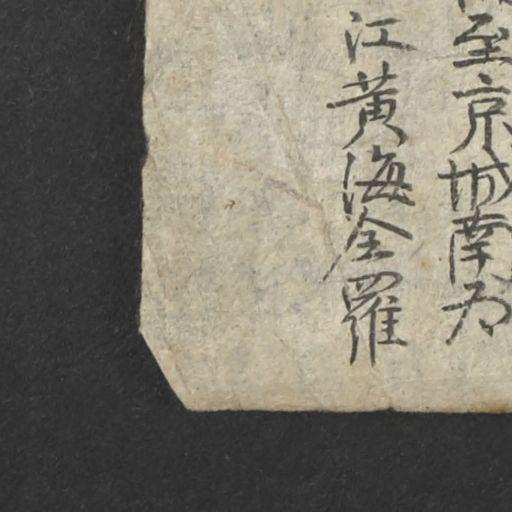 至京城南為
江黃海全羅